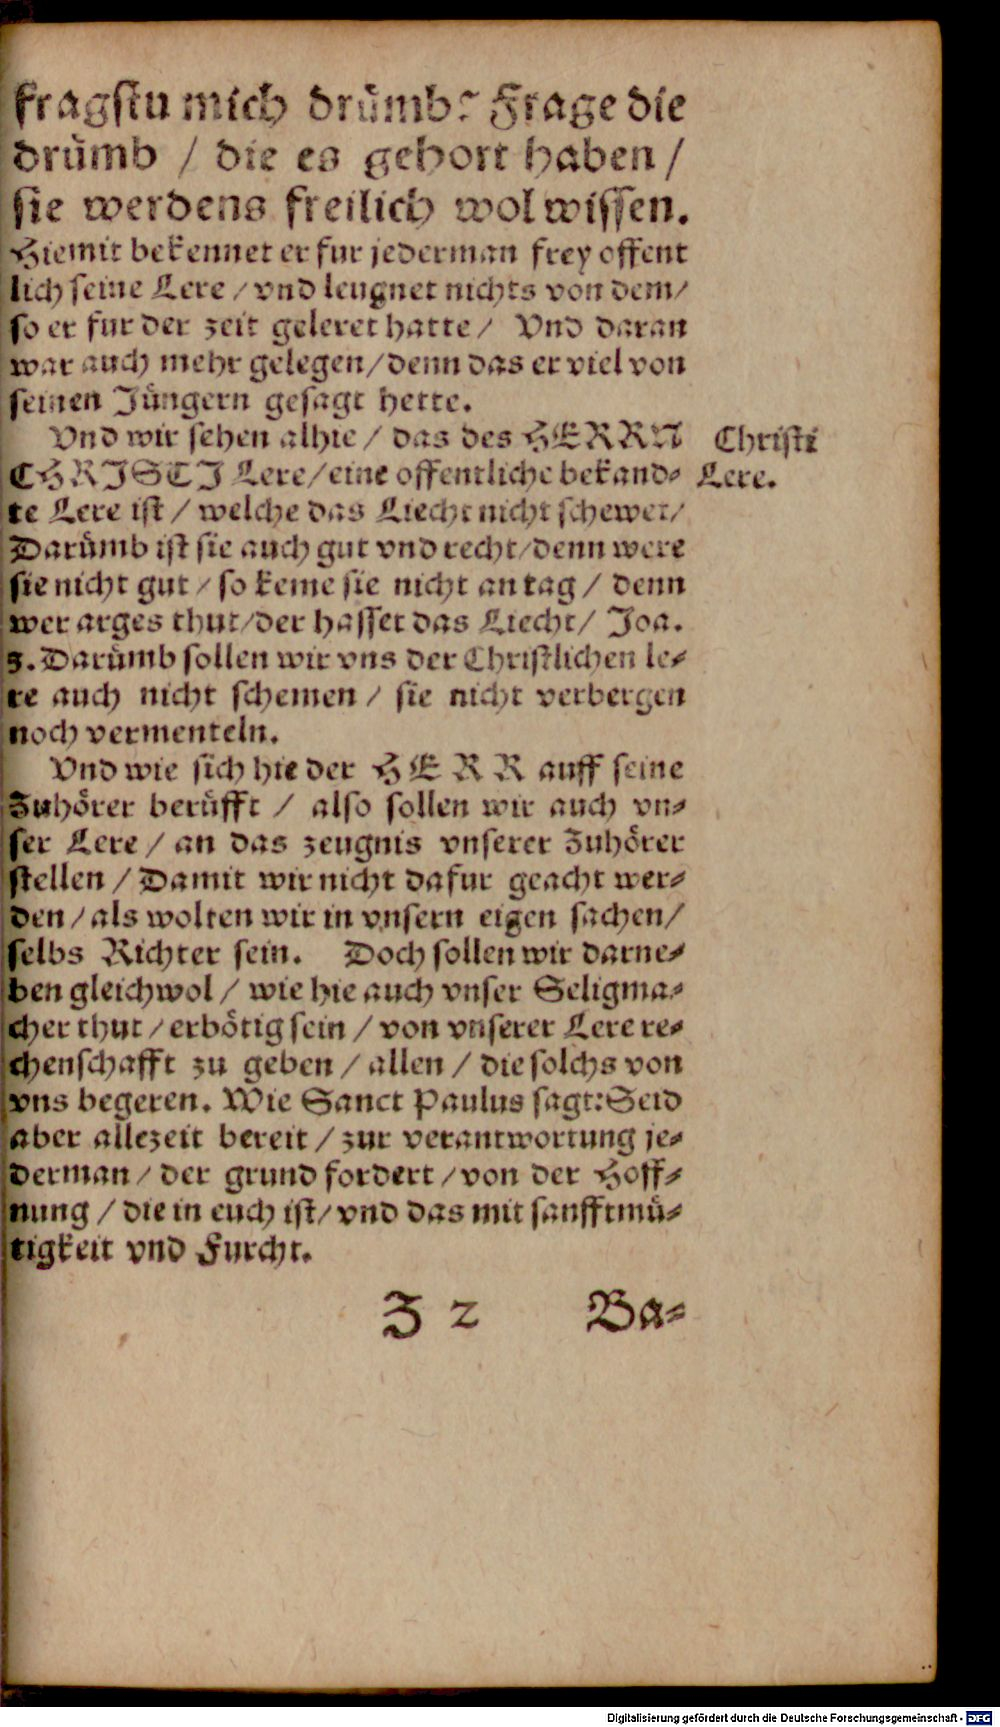 fragstu mich drümb? Frage die
drümb / die es gehort haben /
sie werdens freilich wol wissen.
Hiemit bekennet er fur jederman frey offent
lich seine Lere / vnd leugnet nichts von dem /
so er fur der zeit geleret hatte / Vnd daran
war auch mehr gelegen / denn das er viel von
seinen Jüngern gesagt hette.
Vnd wir sehen alhie / das des HERRN
Christi
CHRISTI Lere / eine offentliche bekand⸗
Lere.
te Lere ist / welche das Liecht nicht schewet /
Darümb ist sie auch gut vnd recht / denn were
sie nicht gut / so keme sie nicht an tag / denn
wer arges thut / der hasset das Liecht / Joa.
3. Darümb sollen wir vns der Christlichen le⸗
re auch nicht schemen / sie nicht verbergen
noch vermenteln.
Vnd wie sich hie der HERR auff seine
Zuhörer berüfft / also sollen wir auch vn⸗
ser Lere / an das zeugnis vnserer Zuhörer
stellen / Damit wir nicht dafur geacht wer⸗
den / als wolten wir in vnsern eigen sachen /
selbs Richter sein. Doch sollen wir darne⸗
ben gleichwol / wie hie auch vnser Seligma⸗
cher thut / erbötig sein / von vnserer Lere re⸗
chenschafft zu geben / allen / die solchs von
vns begeren. Wie Sanct Paulus sagt: Seid
aber allezeit bereit / zur verantwortung je⸗
derman / der grund fordert / von der Hoff⸗
nung / die in euch ist / vnd das mit sanfftmü⸗
tigkeit vnd Furcht.
Z 2 Ba⸗
Digitalisierung gefördert durch die Deutsche Forschungsgemeinschaft - DFG